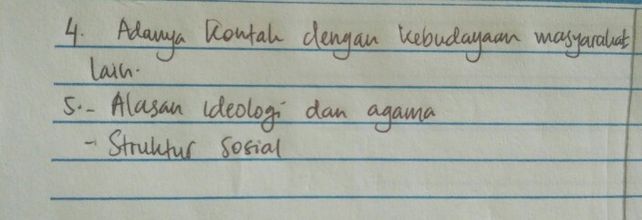 4. Adanya Kontak dengan kebudayaan masyarakat
lain.
5.- Alasan ideologi dan agama
- Struktur Sosial